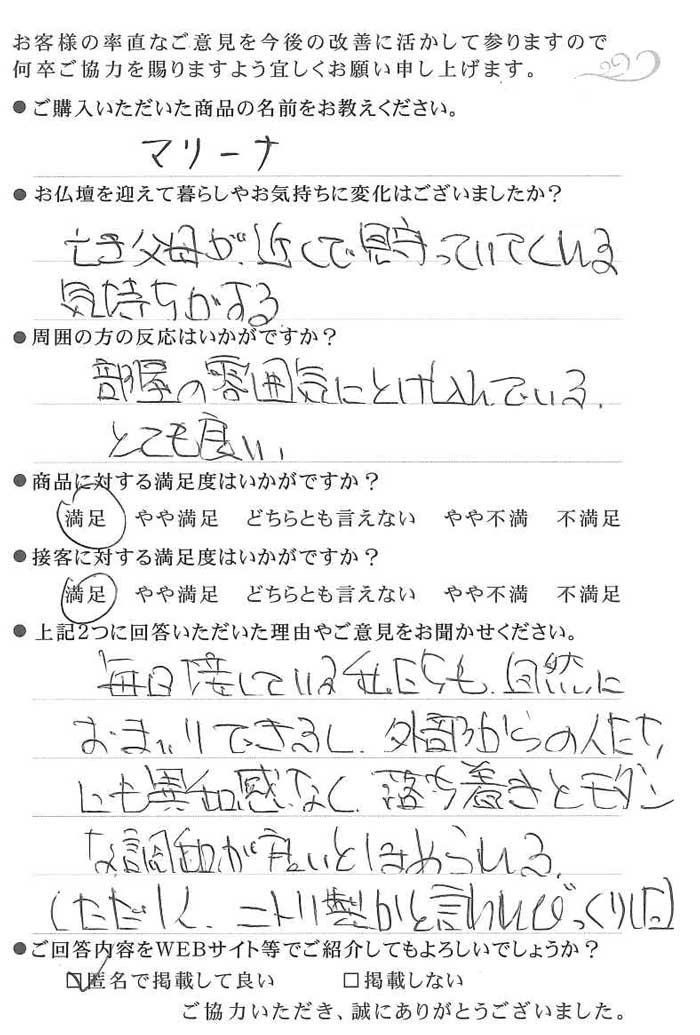 お客様の率直なご意見を今後の改善に活かして参りますので
何卒ご協力を賜りますよう宜しくお願い申し上げます。
●ご購入いただいた商品の名前をお教えください。
マリーナ
●お仏壇を迎えて暮らしやお気持ちに変化はございましたか？
亡き父母が、近くで見守っていてくいる
気持ちがする
●周囲の方の反応はいかがですか？
部屋の雰囲気にとけ込んでいる、
とても良い、
●商品に対する満足度はいかがですか？
満足 やや満足 どちらとも言えない やや不満 不満足
●接客に対する満足度はいかがですか？
満足 やや満足 どちらとも言えない やや不満 不満足
●上記2つに回答いただいた理由やご意見をお聞かせください。
毎日接している私たちも、自然に
おまいりできるし、外部からの人たち
にも異和感なく、落ち着きとモダン
な調和が良いとほめられる、
(ただし、ニトリ製かと言われびっくりした)
●ご回答内容をWEBサイト等でご紹介してもよろしいでしょうか？
☑匿名で掲載して良い □掲載しない
ご協力いただき、誠にありがとうございました。